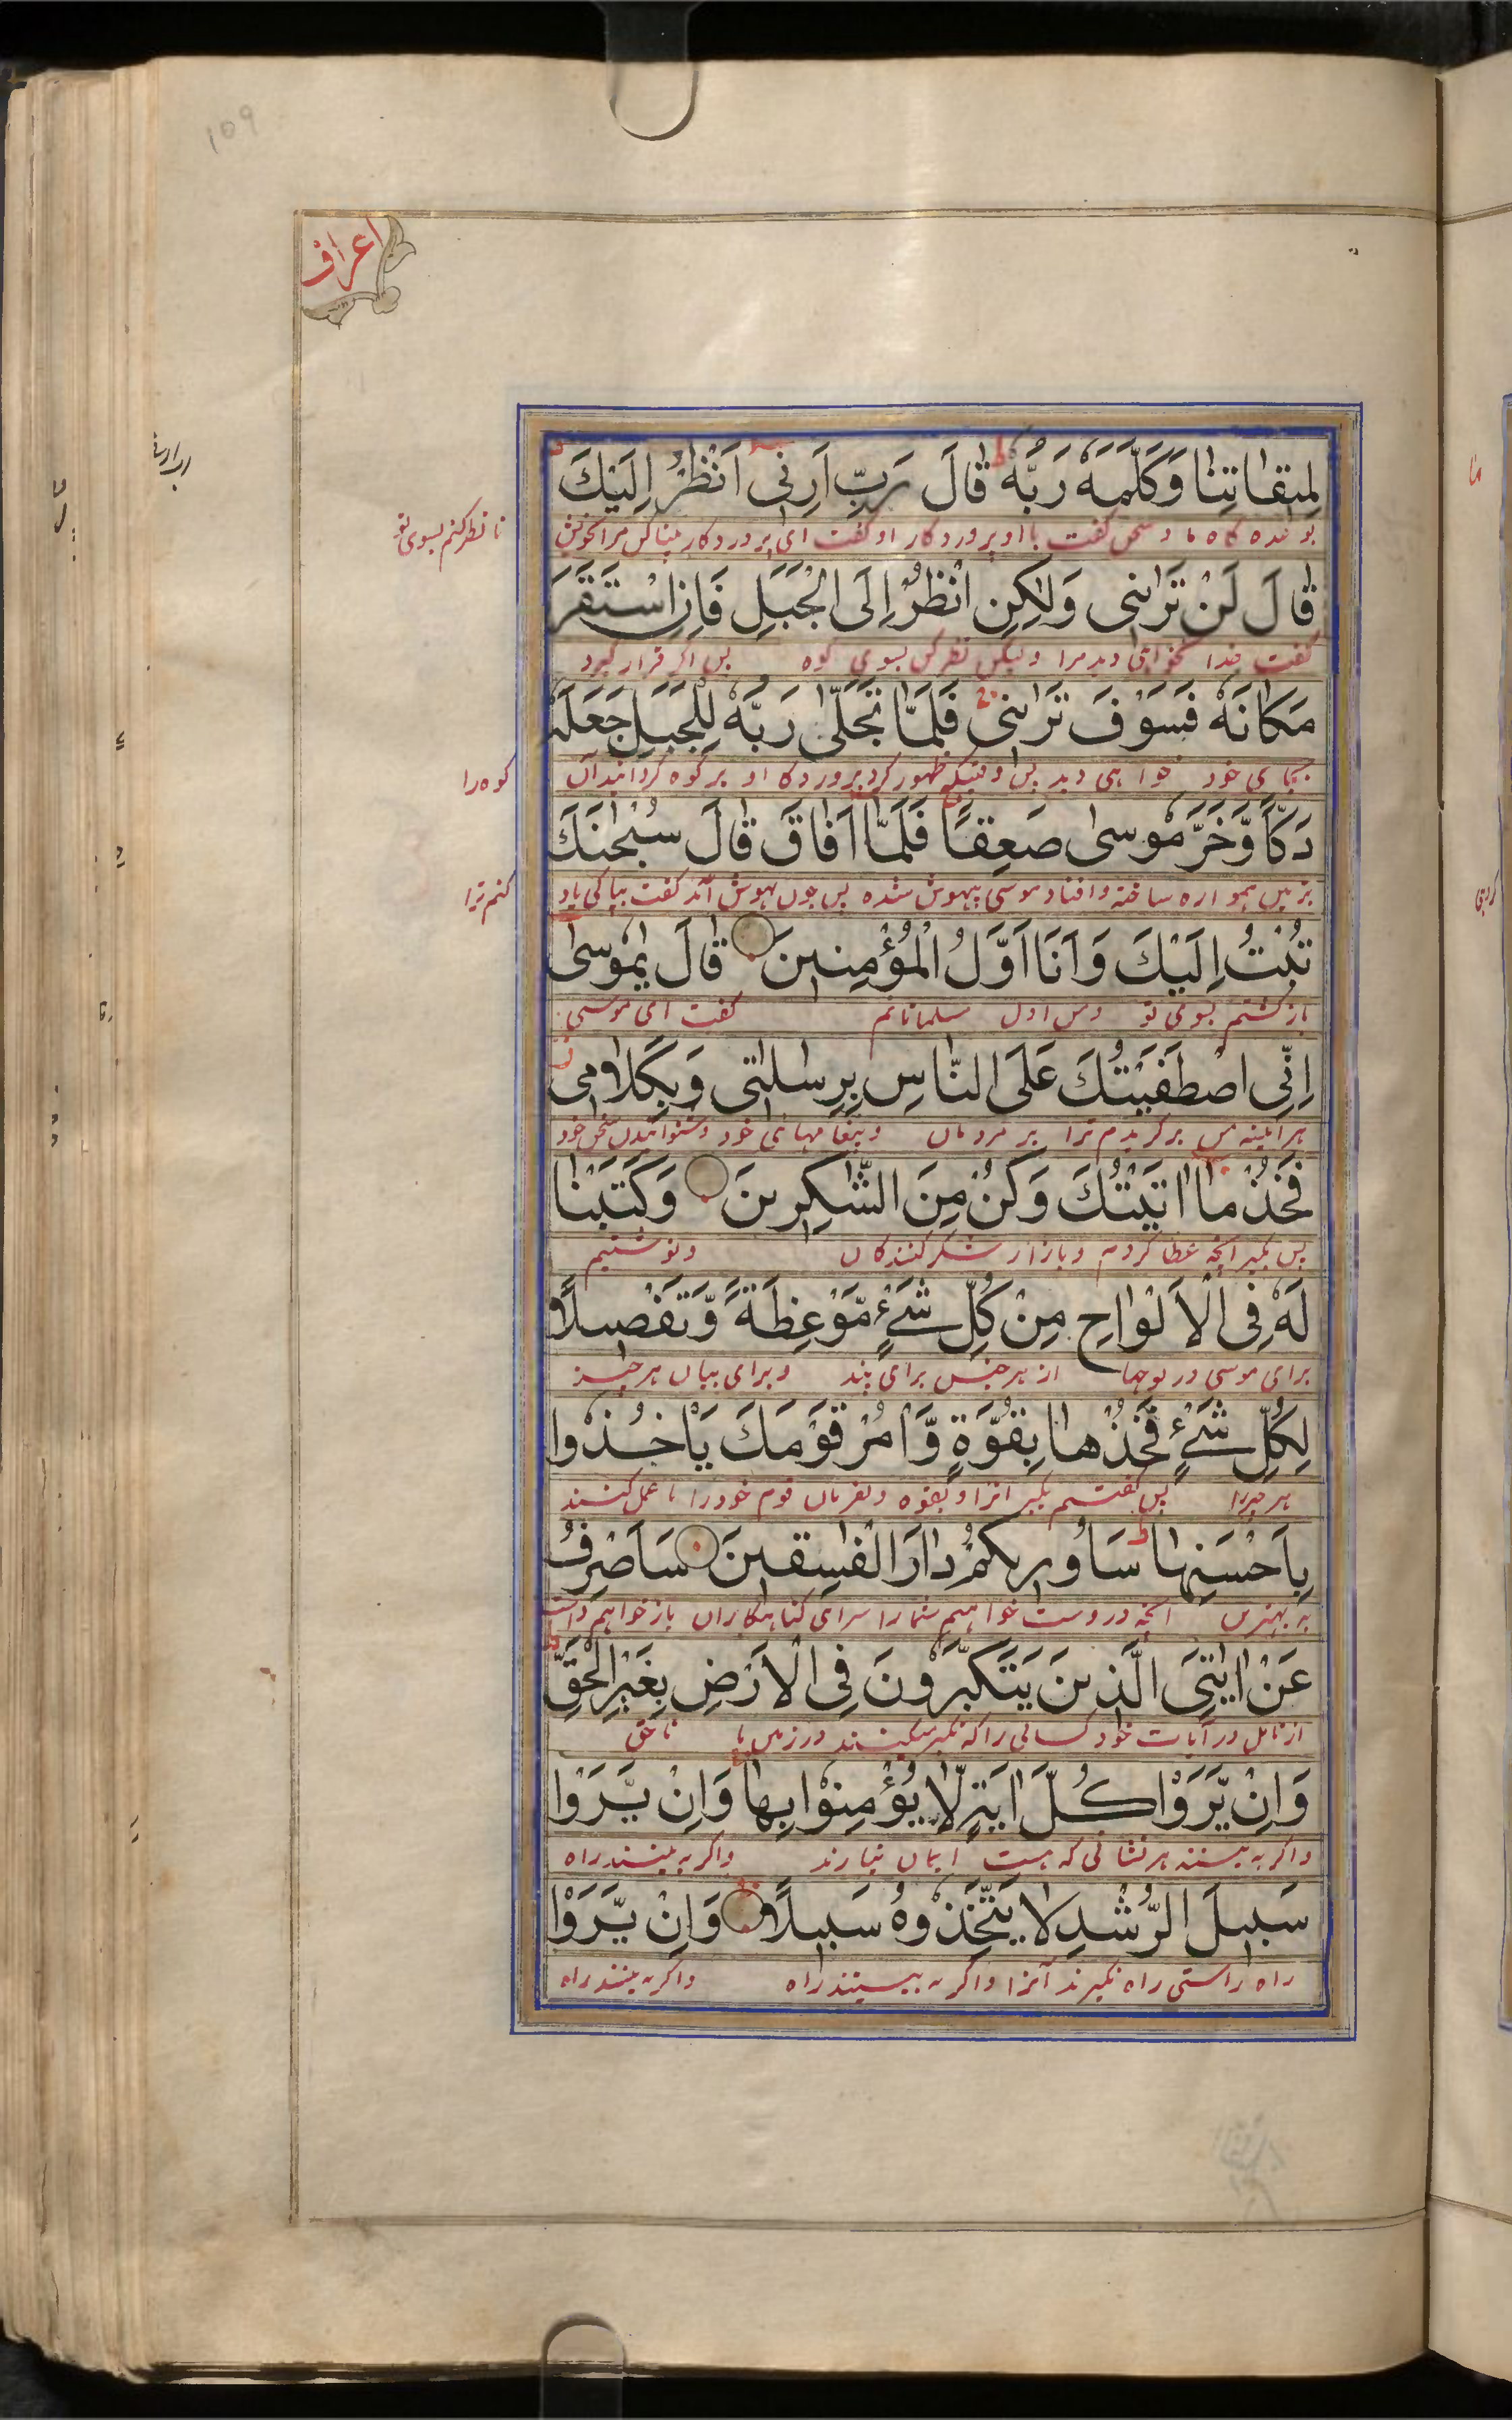 109
اعراف
لِمِيقَاتِنَا وَكَلَّمَهُ رَبُّهُ قَالَ رَبِّ اَرِنِى اَنْظُرْ اِلَيْكَ
بوعده گاه ما و سخن گفت با او پروردگار او گفت ای پروردگار بینا کن مرا بخویش
تا نظر کنم بسوی تو
قَالَ لَنْ تَرَانِى وَلٰكِنِ انْظُرْ اِلَى الْجَبَلِ فَاِنِ اسْتَقَرَّ
گفت خدا نخواهی دید مرا ولیکن نظر کن بسوی کوه پس اگر قرار گیرد
مَكَانَهُ فَسَوْفَ تَرَانِى فَلَمَّا تَجَلّٰى رَبُّهُ لِلْجَبَلِ جَعَلَهُ
بجای خود خواهی دید پس وقتیکه ظهور کرد پروردگار او بر کوه گردانید آن
کوه را
دَكًّا وَّخَرَّ مُوسٰى صَعِقًا فَلَمَّا اَفَاقَ قَالَ سُبْحٰنَكَ
بزمین هموار ساخته و افتاد موسی بیهوش شده پس چون بهوش آمد گفت بپاکی یاد
کنم ترا
تُبْتُ اِلَيْكَ وَاَنَا اَوَّلُ الْمُؤْمِنِينَ قَالَ يٰمُوسٰى
بازگشتم بسوی تو ومن اول مسلمانانم گفت ای موسی
اِنِّى اصْطَفَيْتُكَ عَلَى النَّاسِ بِرِسٰلٰتِى وَبِكَلَامِى
هر آیینه من برگزیدم ترا بر مردمان و پیغامهای خود و شنوانیدن سخن خود
فَخُذْ مَا اٰتَيْتُكَ وَكُنْ مِنَ الشّٰكِرِينَ وَكَتَبْنَا
پس بگیر آنچه عطا کردم و باز از شکرکنندگان و نوشتیم
لَهُ فِى الْاَلْوَاحِ مِنْ كُلِّ شَىْءٍ مَّوْعِظَةً وَّتَفْصِيلًا
برای موسی در لوحها از هر جنس برای پند و برای بیان هر چیز
لِكُلِّ شَىْءٍ فَخُذْهَا بِقُوَّةٍ وَّاْمُرْ قَوْمَكَ يَاْخُذُوا
هر چیز را پس گفتیم بگیر آنرا و بقوه و بفرمان قوم خود را تا عمل کنند
بِاَحْسَنِهَا سَاُورِيكُمْ دَارَ الْفٰسِقِينَ سَاَصْرِفُ
به بهترین آنچه در وست خواهیم شما را سرای گناهکاران باز خواهم داشت
عَنْ اٰيٰتِىَ الَّذِينَ يَتَكَبَّرُونَ فِى الْاَرْضِ بِغَيْرِ الْحَقِّ
از تامل در آیات خود کسانی را که تکبر میکنند در زمین نا حق
وَاِنْ يَّرَوْا كُلَّ اٰيَةٍ لَّا يُؤْمِنُوْا بِهَا وَاِنْ يَّرَوْا
واگر به بینند هر نشانی که هست ایمان نیارند واگر به بینند راه
سَبِيلَ الرُّشْدِ لَا يَتَّخِذُوهُ سَبِيلًا وَاِنْ يَّرَوْا
راه راستی راه نگیرند آنرا واگر به بینند راه واگر به بینند راه